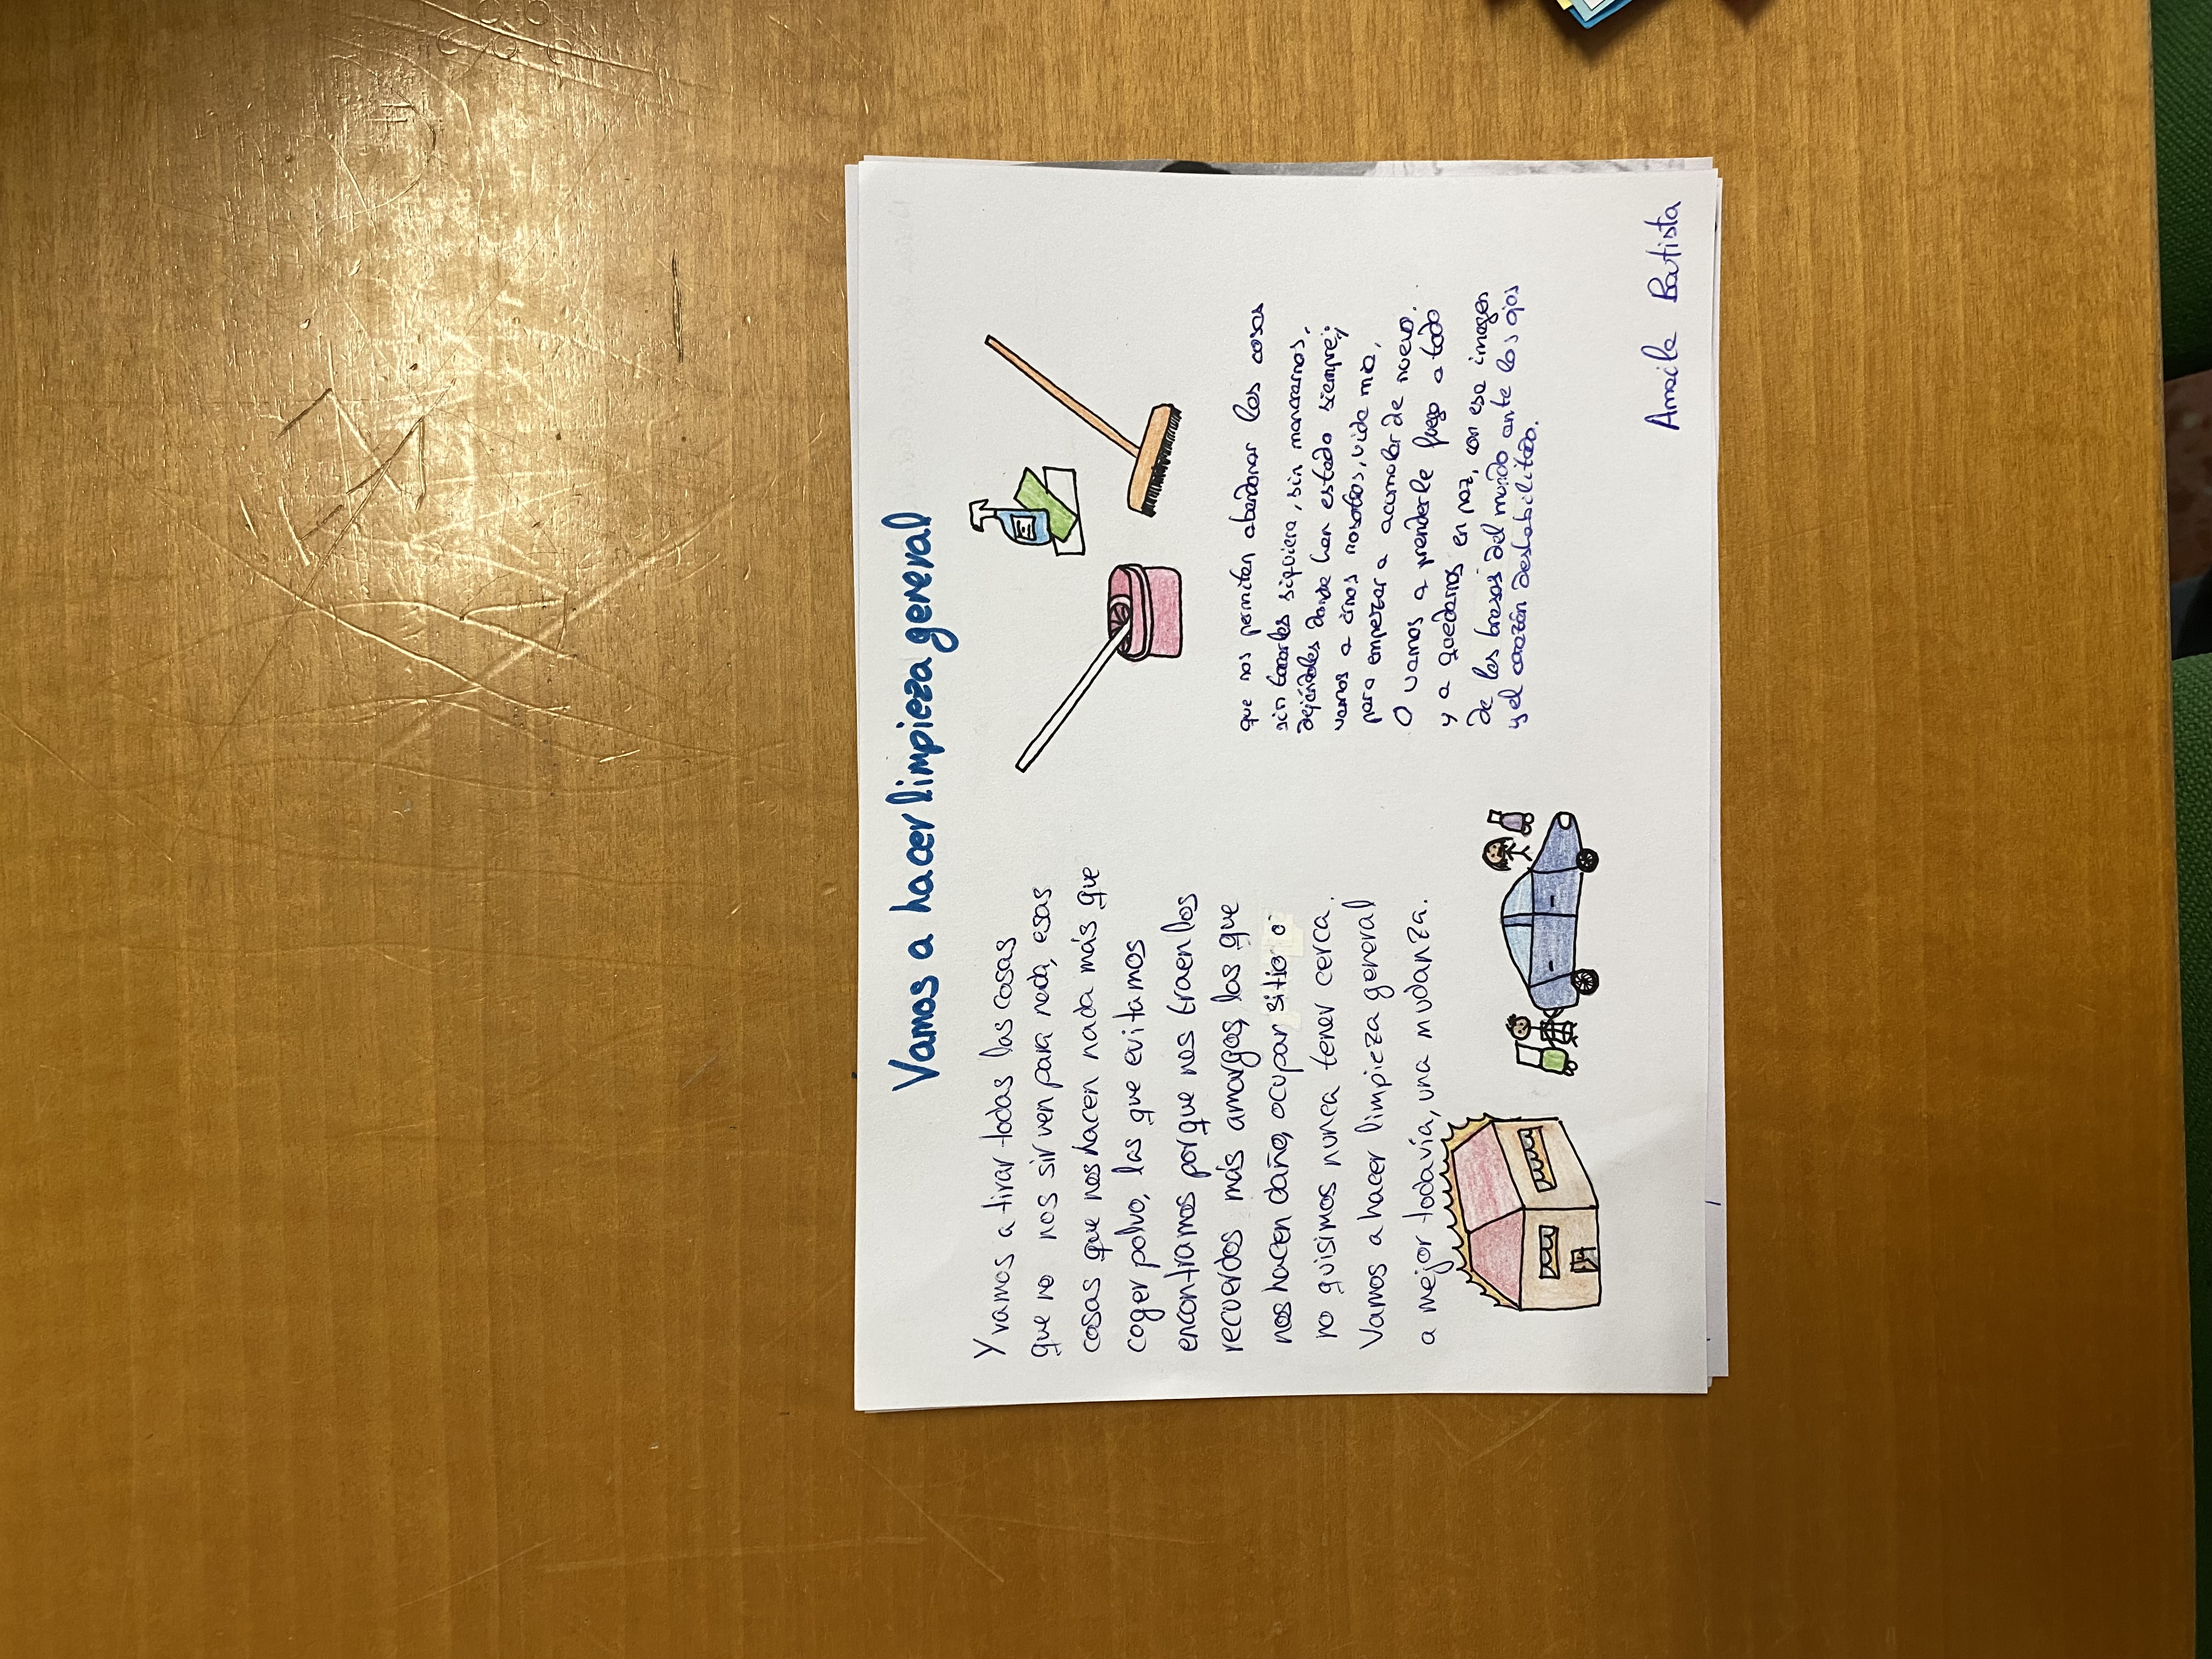 Vamos a hacer limpieza general
Y vamos a tirar todas las cosas
que no nos sirven para nada, esas
cosas que nos hacen nada más que
coger polvo, las que evitamos
encontrarnos porque nos traen los
recuerdos más amargos, las que
nos hacen daño, ocupar sitio o
no quisimos nunca tener cerca.
Vamos a hacer limpieza general
a mejor todavía, una mudanza.
que nos permitan abandonar las cosas
sin tocarles siquiera, sin mancharnos,
dejándoles donde han estado siempre;
vamos a irnos nosotros, vida mía,
para empezar a acumular de nuevo.
O vamos a prenderle fuego a todo
y a quedarnos en paz, con esa imagen
de las brasas del mundo ante los ojos
y el corazón deshabilitado.
Amaila Batista